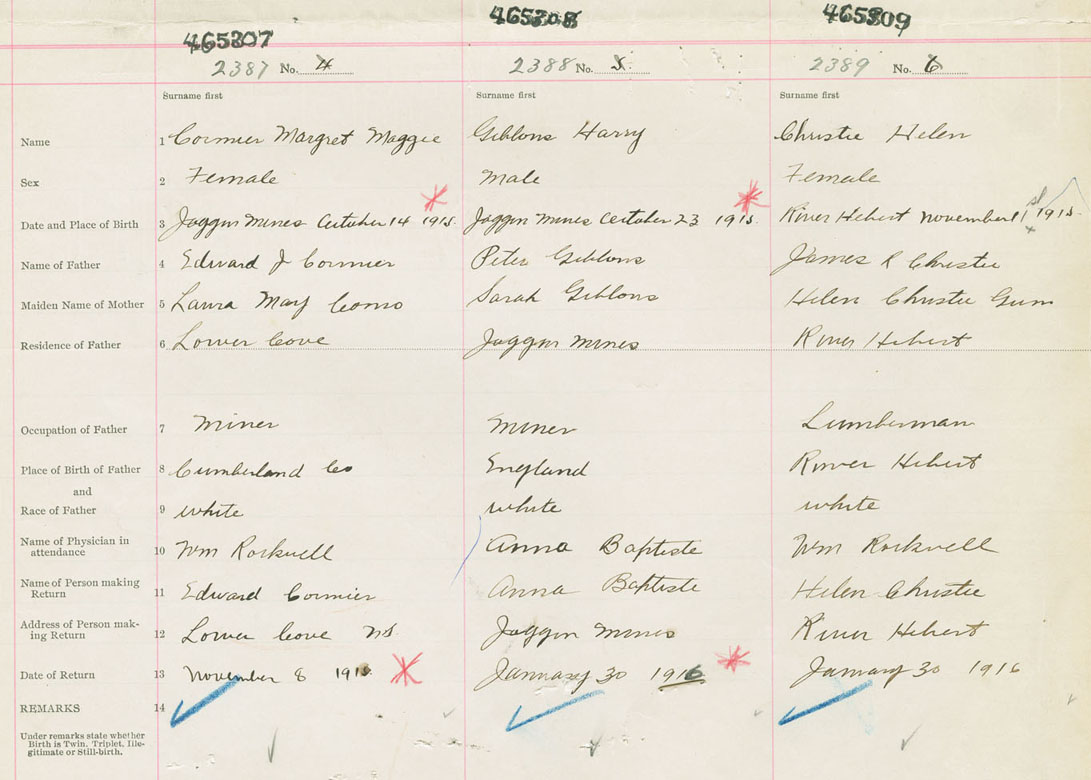 465307 465308 465309
2387 No. 4 2388 No. 5 2389 No. 6
Surname first Surname first Surname first
Name 1 Cormier Margret Maggie Gibbons Harry Christie Helen
Sex 2 Female Male Female
Date and Place of Birth 3 Joggin Mines Octuber 14 1915. Joggin Mines Octuber 23 1915. River Hebert November 1st 1915.
Name of Father 4 Edward J Cormier Peter Gibbons James R Christie
Maiden Name of Mother 5 Laura May Como Sarah Gibbons Helen Christie Gum
Residence of Father 6 Lower Cove Joggin Mines River Hebert
Occupation of Father 7 Miner Miner Lumberman
Place of Birth of Father 8 Cumberland Co England River Hebert
and
Race of Father 9 white white white
Name of Physician in
attendance 10 Wm Rockwell Anna Baptiste Wm Rockwell
Name of Person making
Return 11 Edward Cormier Anna Baptiste Helen Christie
Address of Person mak-
ing Return 12 Lower Cove NS. Joggin Mines River Hebert
Date of Return 13 November 8 1915 January 30 1916 January 30 1916
REMARKS 14
Under remarks state whether
Birth is Twin, Triplet, Ille-
gitimate or Still-birth.